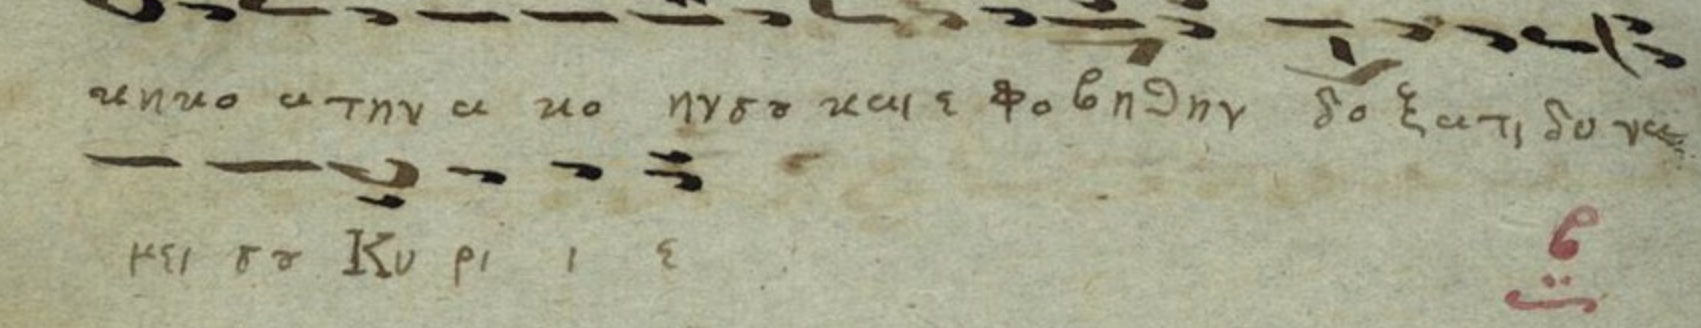 κηκο α την α κο ην σου και ε φο βη θην δο ξα τι δυ να
μει σου Κυ ρι ι ε